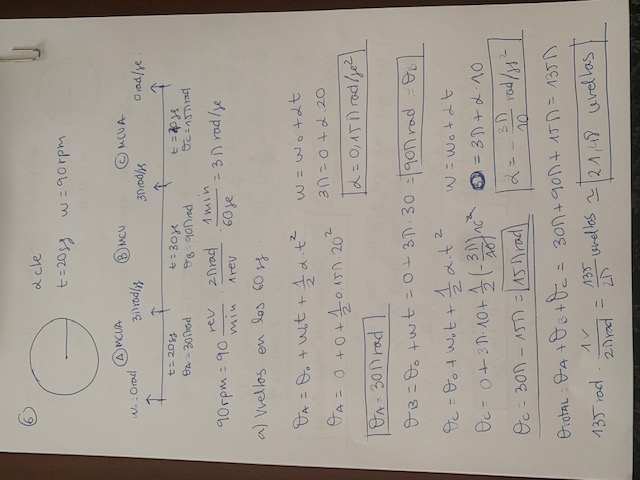 ⑥
α cte
t=20sg   w=90rpm
Ⓐ MCUA   Ⓑ MCU   Ⓒ MCUA
wi=0rad   3π rad/s   3π rad/s   0 rad/se
t=20sg   t=30sg
θA=30π rad   θB=90π rad   θC=15π rad
90rpm = 90 rev/min · 2π rad/1 rev · 1 min/60 se = 3π rad/se
a) Vueltas en los 60 sg.
θA = θo + wot + 1/2 α·t²   w = wo + αt
θA = 0 + 0 + 1/2 0,15π·20²   3π = 0 + α·20
θA = 30π rad   α = 0,15π rad/se²
θB = θo + wt = 0 + 3π·30 = 90π rad = θB
θC = θo + wot + 1/2 α·t²   w = wo + αt
θC = 0 + 3π·10 + 1/2 (-3π/10) 10²   0 = 3π + α·10
θC = 30π - 15π = 15π rad   α = -3π/10 rad/s²
θTOTAL = θA + θB + θC = 30π + 90π + 15π = 135π
135 rad · 1v/2π rad = 135/2π vueltas ≃ 21,48 vueltas